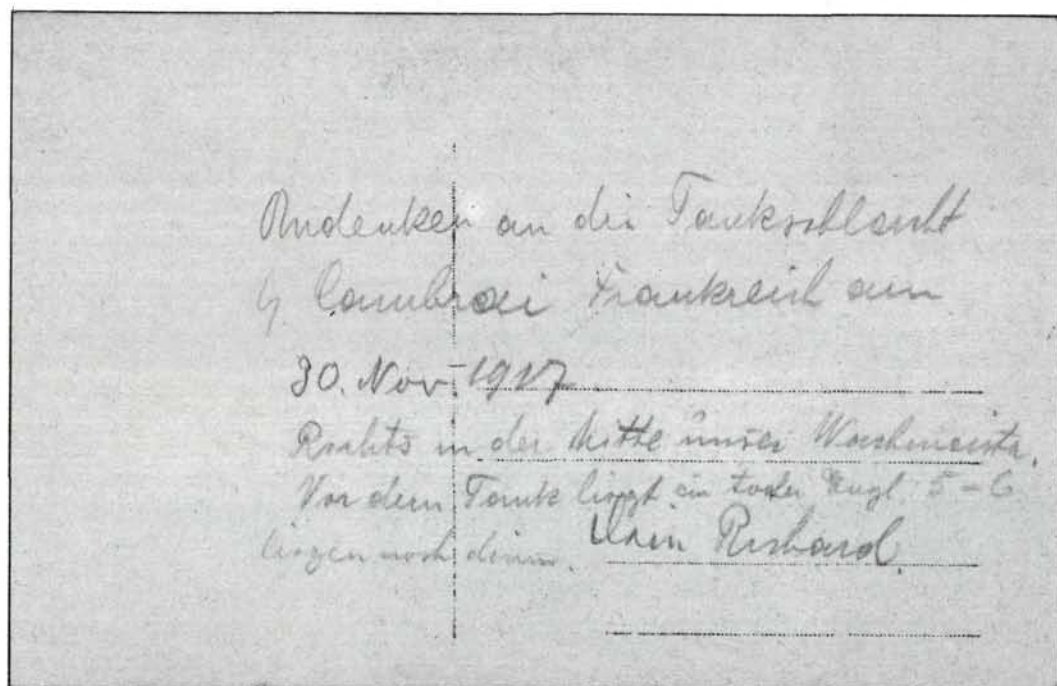 Andenken an die Tankschlacht
b/ Cambrai Frankreich am
30. Nov. 1917
Rechts in der Mitte unser Wachmeister.
Vor dem Tank liegt ein toter Engl. 5-6
liegen noch drinn. Richard.